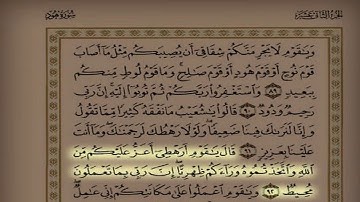 الجزء الثاني عشر
سورة هود
وَيَٰقَوْمِ لَا يَجْرِمَنَّكُمْ شِقَاقِىٓ أَن يُصِيبَكُم مِّثْلُ مَآ أَصَابَ
قَوْمَ نُوحٍ أَوْ قَوْمَ هُودٍ أَوْ قَوْمَ صَٰلِحٍ وَمَا قَوْمُ لُوطٍ مِّنكُم
بِبَعِيدٍ ٨٩ وَٱسْتَغْفِرُوا۟ رَبَّكُمْ ثُمَّ تُوبُوٓا۟ إِلَيْهِ إِنَّ رَبِّى
رَحِيمٌ وَدُودٌ ٩٠ قَالُوا۟ يَٰشُعَيْبُ مَا نَفْقَهُ كَثِيرًا مِّمَّا تَقُولُ
وَإِنَّا لَنَرَىٰكَ فِينَا ضَعِيفًا وَلَوْلَا رَهْطُكَ لَرَجَمْنَٰكَ وَمَآ أَنتَ
عَلَيْنَا بِعَزِيزٍ ٩١ قَالَ يَٰقَوْمِ أَرَهْطِىٓ أَعَزُّ عَلَيْكُم مِّنَ
ٱللَّهِ وَٱتَّخَذْتُمُوهُ وَرَآءَكُمْ ظِهْرِيًّا إِنَّ رَبِّى بِمَا تَعْمَلُونَ
مُحِيطٌ ٩٢ وَيَٰقَوْمِ ٱعْمَلُوا۟ عَلَىٰ مَكَانَتِكُمْ إِنِّى عَٰمِلٌ